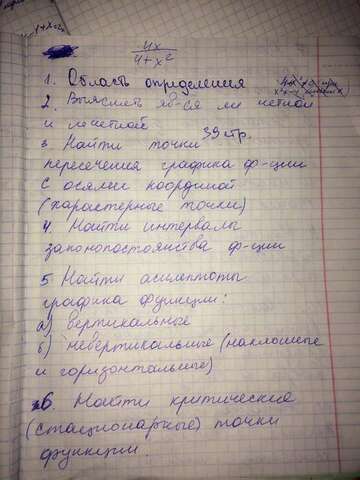 4x
4+x²
1. Область определения
2. Выяснить яв-ся ли четной
и нечетной
39 стр.
3. Найти точки
пересечения графика ф-ции
с осями координат
(характерные точки)
4. Найти интервалы
законопостоянства ф-ции
5 Найти асимптоты
графика функции:
а) вертикальные
б) невертикальные (наклонные
и горизонтальные)
6. Найти критические
(стационарные) точки
функции.